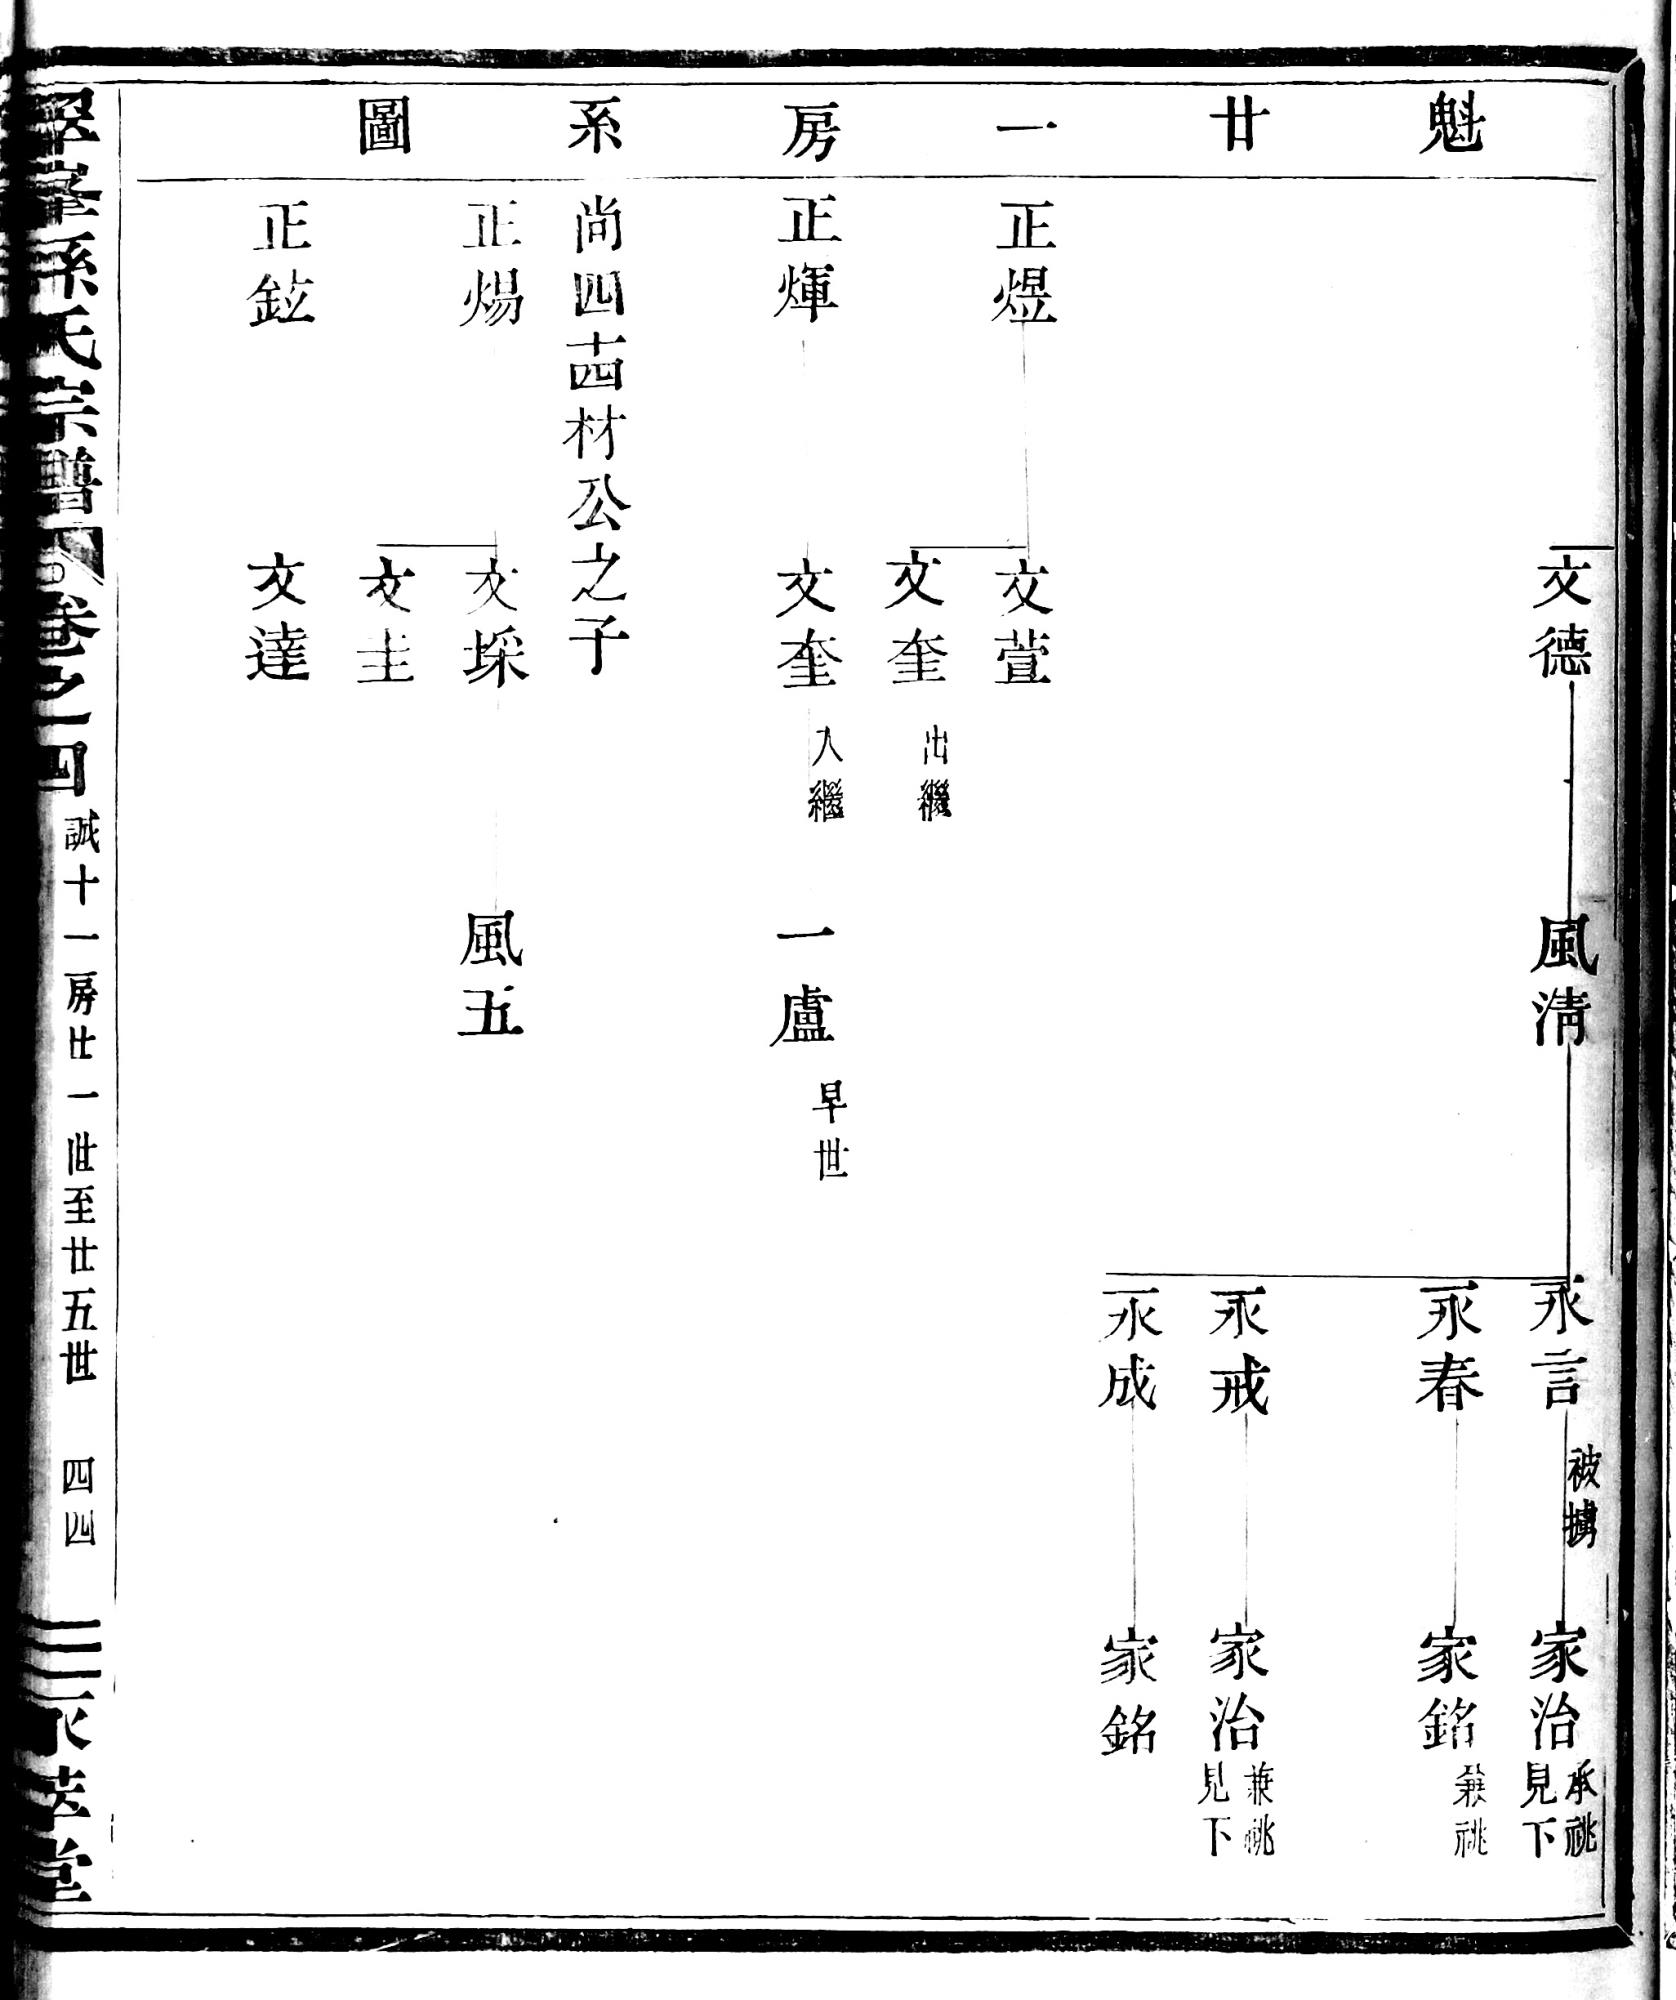 魁廿一房系圖
文德
風清
永言
被擄
家治
承祧
見下
永春
家銘
兼祧
永戒
家治
兼祧
見下
永成
家銘
正煜
文萱
文奎
出繼
正煇
文奎
入繼
一盧
早世
尚四十四材公之子
正煬
文埰
風五
文圭
正鉉
文達
孫氏宗譜
卷之四
誠十一房廿一世至廿五世
四四
堂